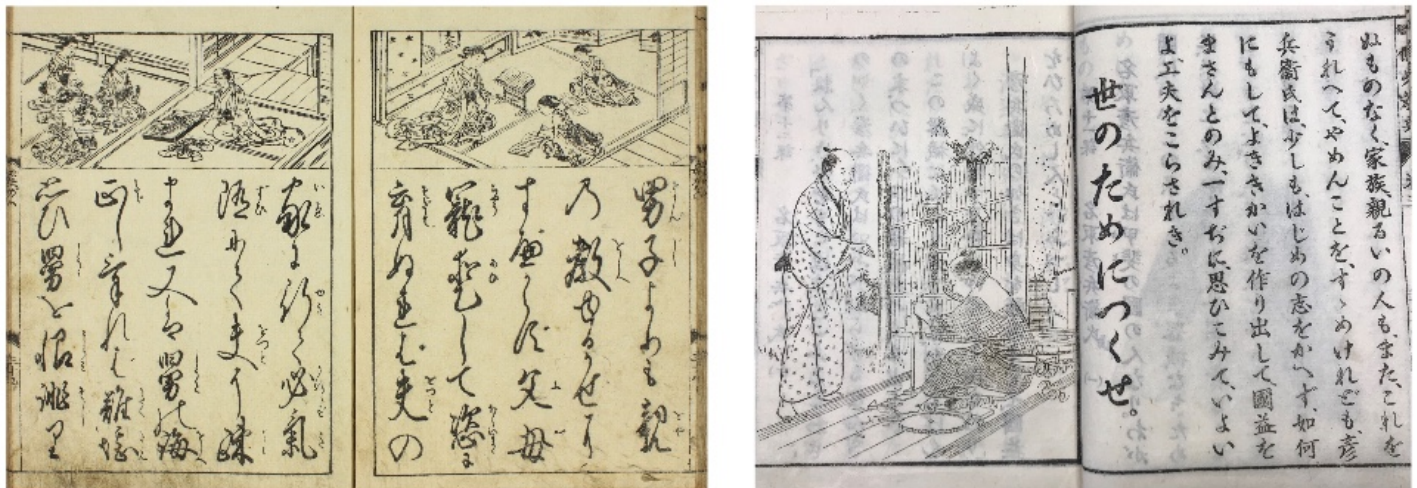 男子よりも親
乃教ゆるかせに
すべからず父母
寵愛して恣に
育ぬれば夫の
家に行て必氣
随にて夫に疎
まれ又は舅の誨
正しければ難堪
思ひ舅を恨誹り
ぬものなく、家族親るいの人もまた、これを
うれへて、やめんことを、すゝめけれども、彦
兵衞氏は、少しも、はじめの志をかへず、如何
にもして、よききかいを作り出して、國益を
まさんとのみ、一すぢに思ひこみて、いよい
よ、工夫をこらされき。
世のためにつくせ。